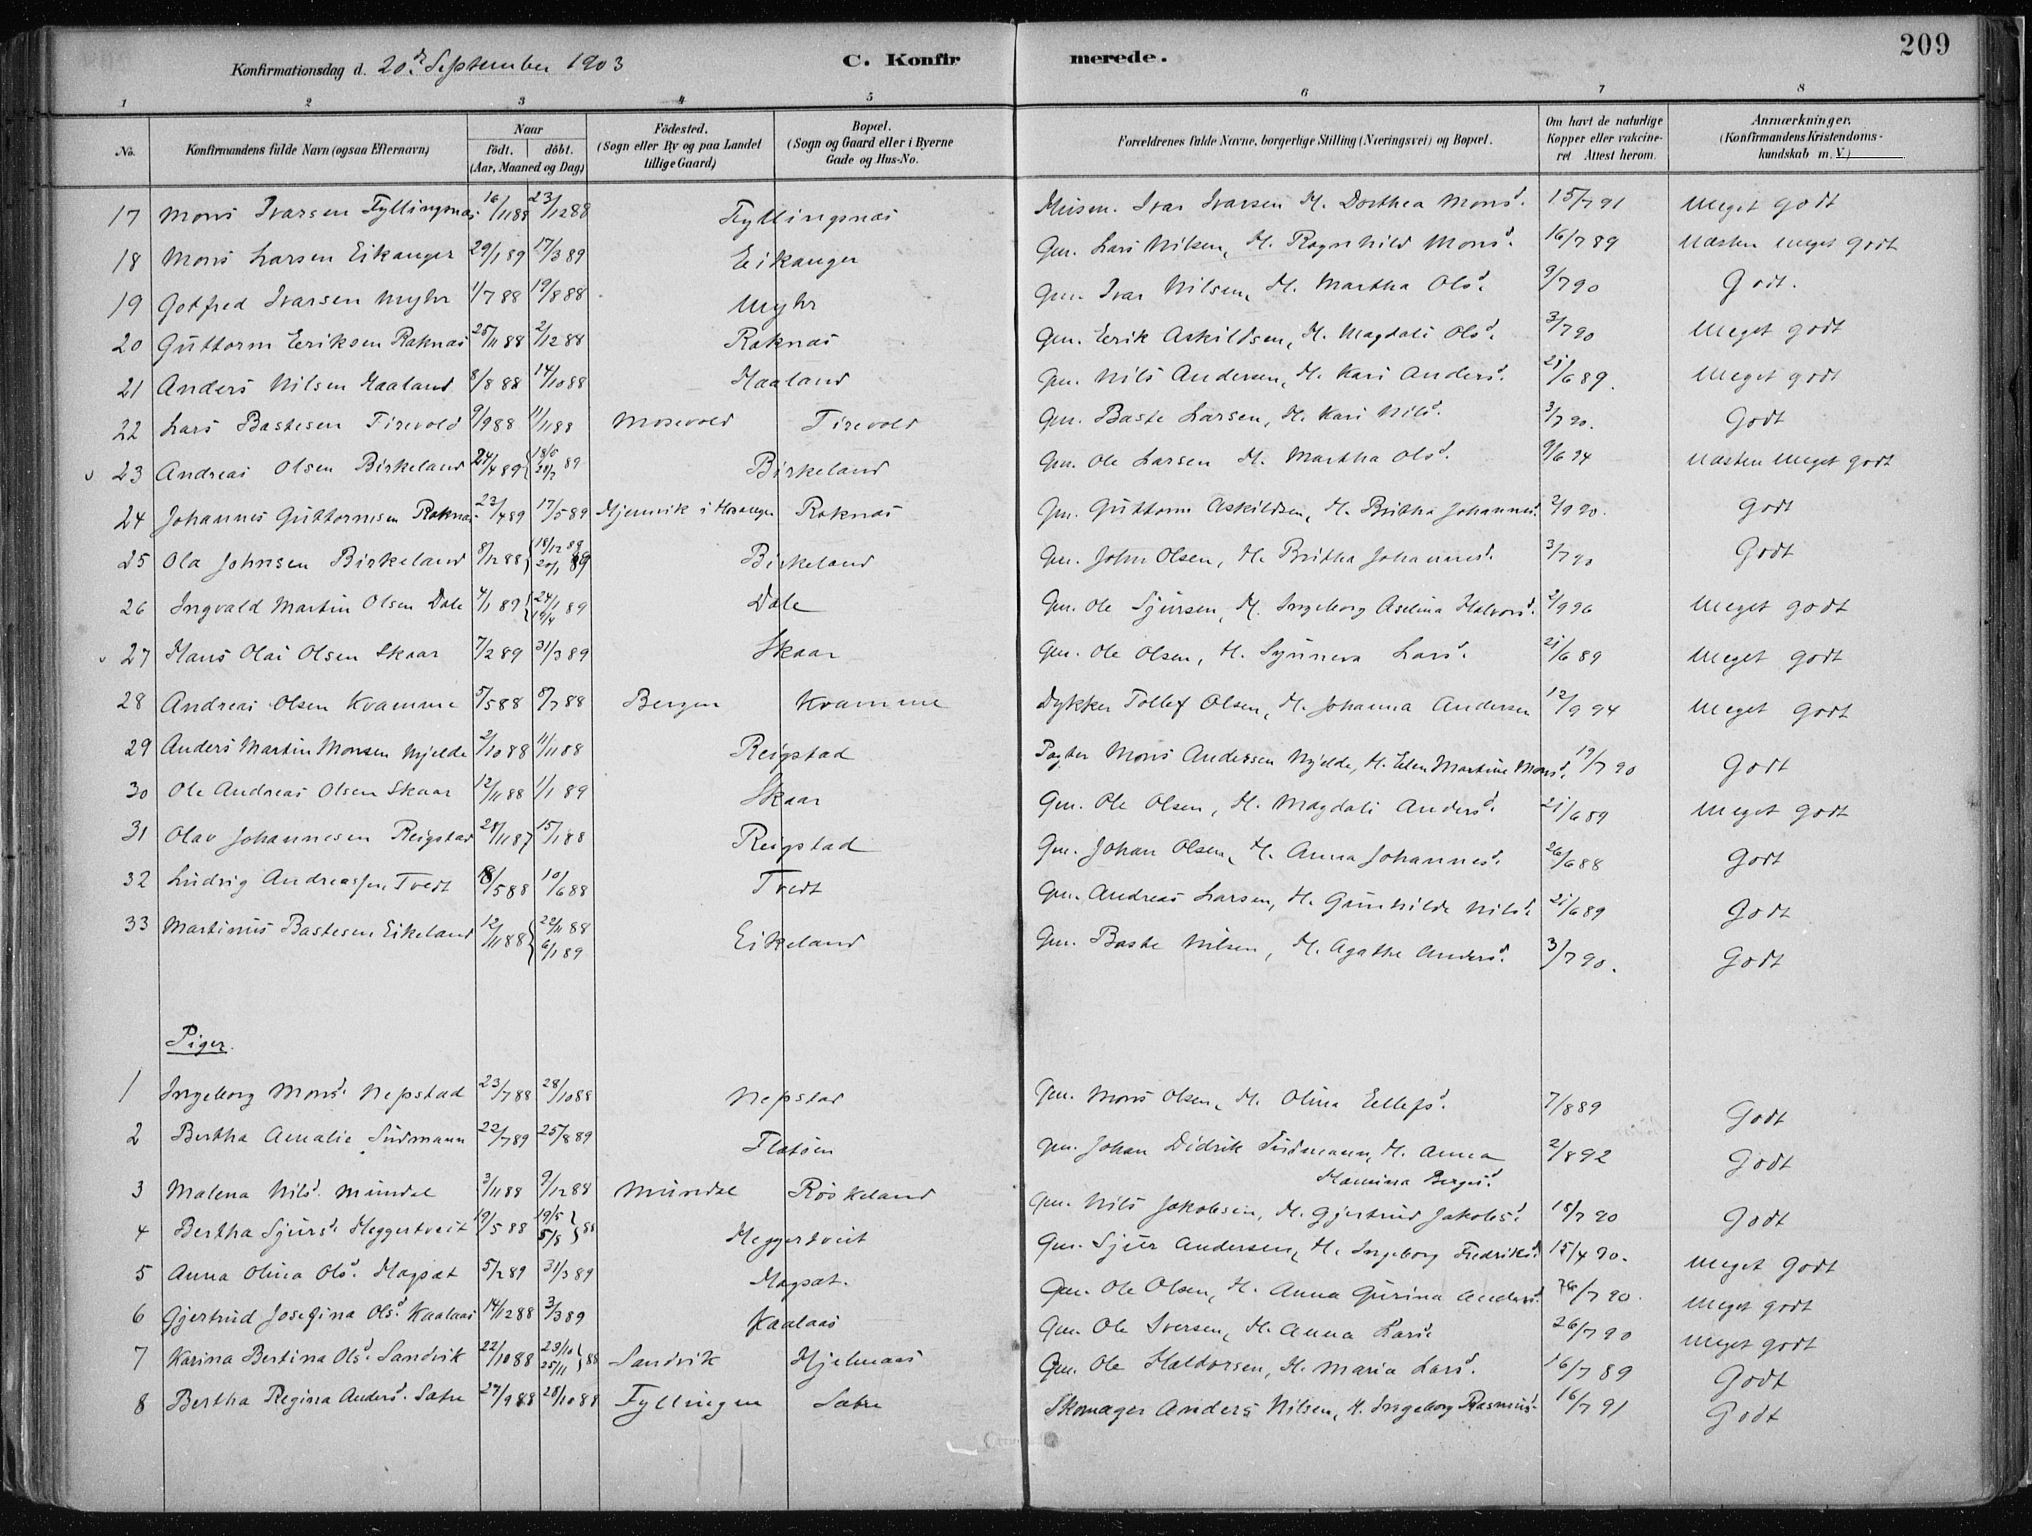 209
Konfirmationsdag d. 20de September 1903 C. Konfirmerede.
1 2 3 4 5 6 7 8
No. Konfirmandens fulde Navn (ogsaa Efternavn) Naar født. døbt. (Aar, Maaned og Dag) Fødested. (Sogn eller By og paa Landet tillige Gaard) Bopæl. (Sogn og Gaard eller i Byerne Gade og Hus-No. Forældrenes fulde Navne, borgerlige Stilling (Næringsvei) og Bopæl. Om havt de naturlige Kopper eller vakcineret Attest herom. Anmærkninger. (Konfirmandens Kristendomskundskab m. V.)
17 Mons Ivarsen Fyllingsnæs 16/11 88 23/12 88 Fyllingsnæs Ivar Ivarsen H. Dorthea Monsd. 15/7 91 Meget godt
18 Mons Larsen Eikanger 29/1 89 17/3 89 Eikanger Gm. Lars Nilsen, H. Ragnhild Monsd. 16/7 89 Næsten meget godt
19 Gotfred Ivarsen Myhr 1/7 88 19/8 88 Myhr Gm. Ivar Nilsen, H. Martha Olsd. 9/7 90 Godt.
20 Guttorm Eriksen Raknæs 25/11 88 2/12 88 Raknæs Gm. Erik Askildsen, H. Magdali Olsd. 3/7 90 Meget godt
21 Anders Nilsen Haaland 8/8 88 14/10 88 Haaland Gm. Nils Andersen, H. Kari Andersd. 21/6 89. Meget godt
22 Lars Bastesen Tirevold 9/9 88 11/11 88 Mosevold Tirevold Gm. Baste Larsen, H. Kari Nilsd. 3/7 90. Godt
23 Andreas Olsen Birkeland 24/4 89 Birkeland Gm. Ole Larsen H. Martha Olsd. 9/6 94 Næsten meget godt
24 Johannes Guttormsen Raknæs 23/4 89 17/5 89 Hjemvik i Hosanger Raknæs Gm. Guttorm Askildsen, H. Britha Johannesd. 2/9 90. Godt
25 Ola Johnsen Birkeland 8/12 88 18/12 88 20/1 89 Birkeland Gm. John Olsen, H. Britha Johannesd. 3/7 90 Godt
26 Ingvald Martin Olsen Dale 4/1 89 24/1 19/4 89 Dale Gm. Ole Sjursen, H. Ingeborg Aselina Halvorsd. 2/9 96 Meget godt
27 Hans Olai Olsen Skaar 7/2 89 31/3 89 Skaar Gm. Ole Olsen, H. Synneva Larsd. 21/6 89 Meget godt
28 Andreas Olsen Kvamme 5/5 88 8/7 88 Bergen Kvamme Dykker Tollef Olsen, H. Johanna Andersen 12/9 94 Meget godt
29 Anders Martin Monsen Mjelde 2/10 88 11/11 88 Reigstad Pagter Mons Andersen Mjelde, H. Elen Martine Monsd. 19/7 90 Godt
30 Ole Andreas Olsen Skaar 12/11 88 1/1 89 Skaar Gm. Ole Olsen, H. Magdali Andersd. 21/6 89 Meget godt
31 Olav Johannesen Reigstad 28/11 87 15/1 88 Reigstad Gm. Johan Olsen, H. Anna Johannesd. 26/6 88 Godt
32 Ludvig Andreassen Tvedt 18/5 88 10/6 88 Tvedt Gm. Andreas Larsen, H. Gunhilde Nilsd. 21/6 89 Godt
33 Martinus Bastesen Eikeland 12/11 88 22/11 88 6/1 89 Eikeland Gm. Baste Nilsen, H. Agathe Andersd. 3/7 90. Godt
Piger.
1 Ingeborg Monsd. Nepstad 23/7 88 28/10 88 Nepstad Gm. Mons Olsen, H. Olina Ellefsd. 7/8 89 Godt
2 Bertha Amalie Sudmann 22/7 89 25/8 89 Flatøen Gm. Johan Didrik Sudmann, H. Anna Bergesd. 2/8 92 Godt
3 Malena Nilsd. Mundal 3/11 88 9/12 88 Mundal Røskeland Gm. Nils Jakobsen, H. Gjertrud Jakobsd. 18/7 90 Godt
4 Bertha Sjursd. Heggertveit 19/5 88 19/5 5/8 88 Heggertveit Gm. Sjur Andersen, H. Ingeborg Fredriksd. 15/4 90. Meget godt
5 Anna Olina Olsd. Hopsæt 5/2 89 31/3 89 Hopsæt. Gm. Ole Olsen, H. Anna Gurina Andersd. 26/7 90. Meget godt
6 Gjertrud Josefina Olsd. Kaalaas 14/12 88 3/3 89 Kaalaas Gm. Ole Iversen, H. Anna Larsd. 26/7 90 Meget godt
7 Karina Bertina Olsd. Sandvik 22/10 88 23/10 25/11 88 Sandvik Hjelmaas Gm. Ole Haldorsen, H. Maria Larsd. 16/7 89 Godt
8 Bertha Regina Andersd. Sætre 27/9 88 28/10 88 Fyllingen Sætre Skomager Anders Nilsen, H. Ingeborg Rasmusd. 16/7 91 Godt